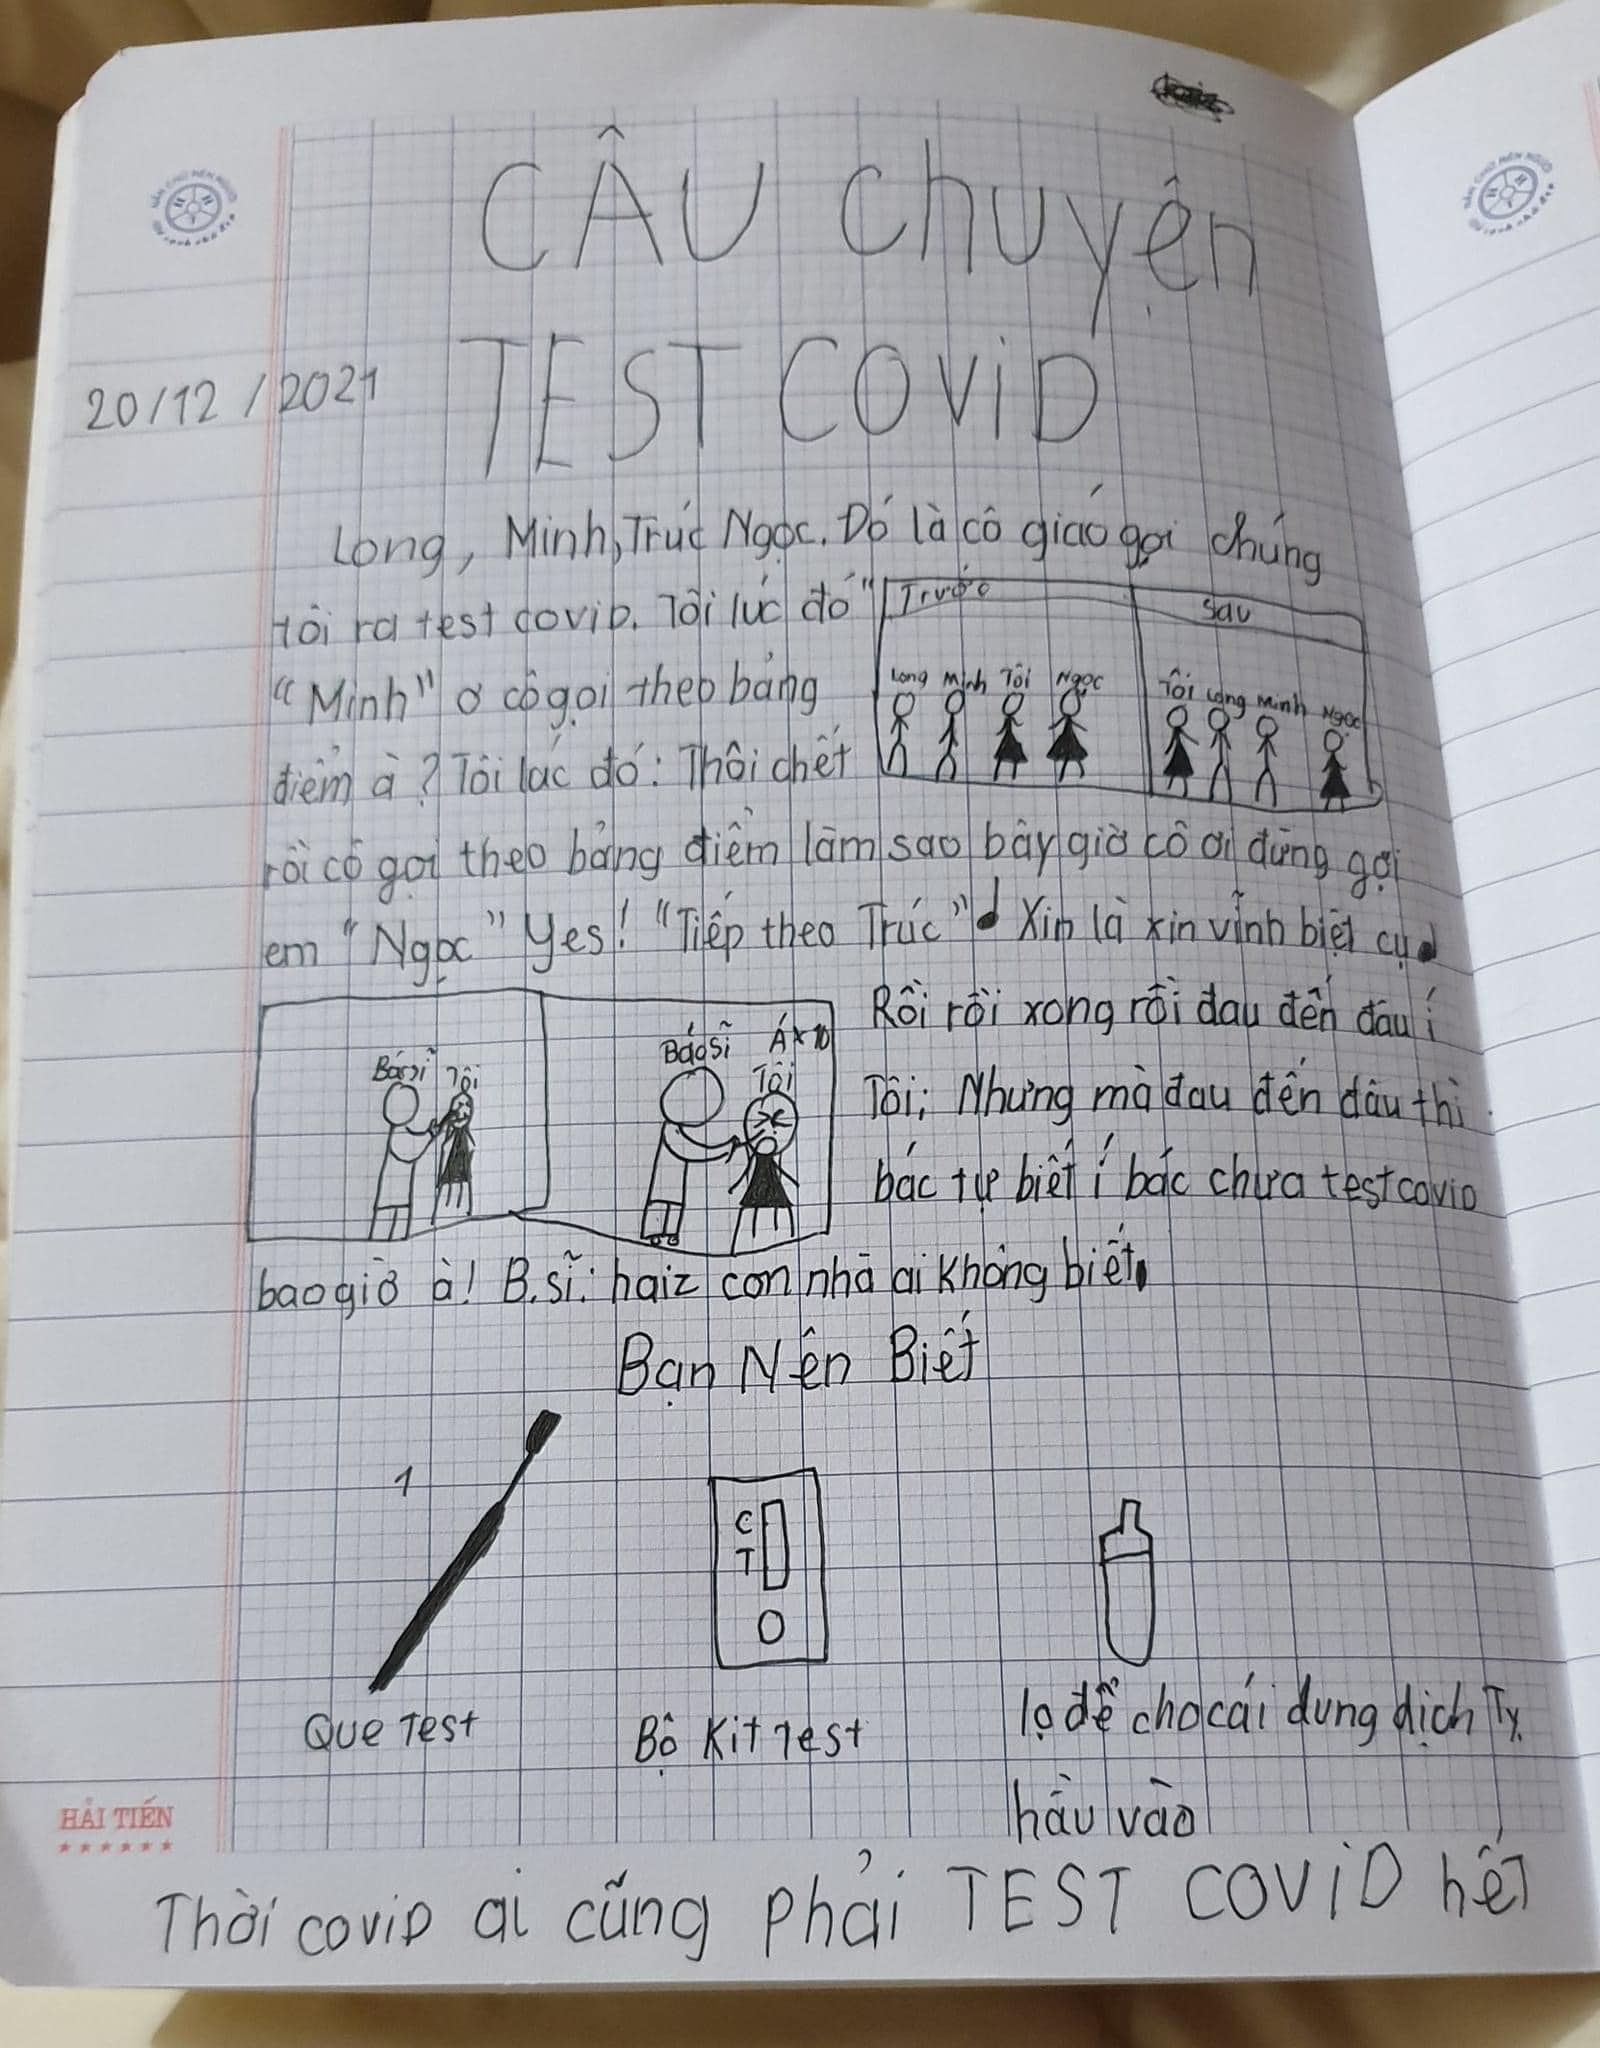 CÂU Chuyện
TEST COVID
20/12/2021
Long, Minh, Trúc Ngọc. Đó là cô giáo gọi chúng
tôi ra test covid. Tôi lúc đó "
Trước
Sau
"Minh" ơ cô gọi theo bảng
Long Minh Tôi Ngọc
Tôi Long Minh Ngọc
điểm à? Tôi lúc đó: Thôi chết
rồi cô gọi theo bảng điểm làm sao bây giờ cô ơi đừng gọi
em "Ngọc" Yes! "Tiếp theo Trúc" Xin là xin vĩnh biệt cụ
Rồi rồi xong rồi đau đến đâu í
Bác sĩ Tôi
Bác sĩ Á x 10
Tôi
Tôi: Nhưng mà đau đến đâu thì
bác tự biết í bác chưa test covid
bao giờ à! B.sĩ: haiz con nhà ai không biết.
Bạn Nên Biết
1
C
T
Que Test
Bộ Kit Test
lọ để cho cái dung dịch Tỵ
hầu vào
HẢI TIẾN
Thời covid ai cũng phải TEST COVID hết